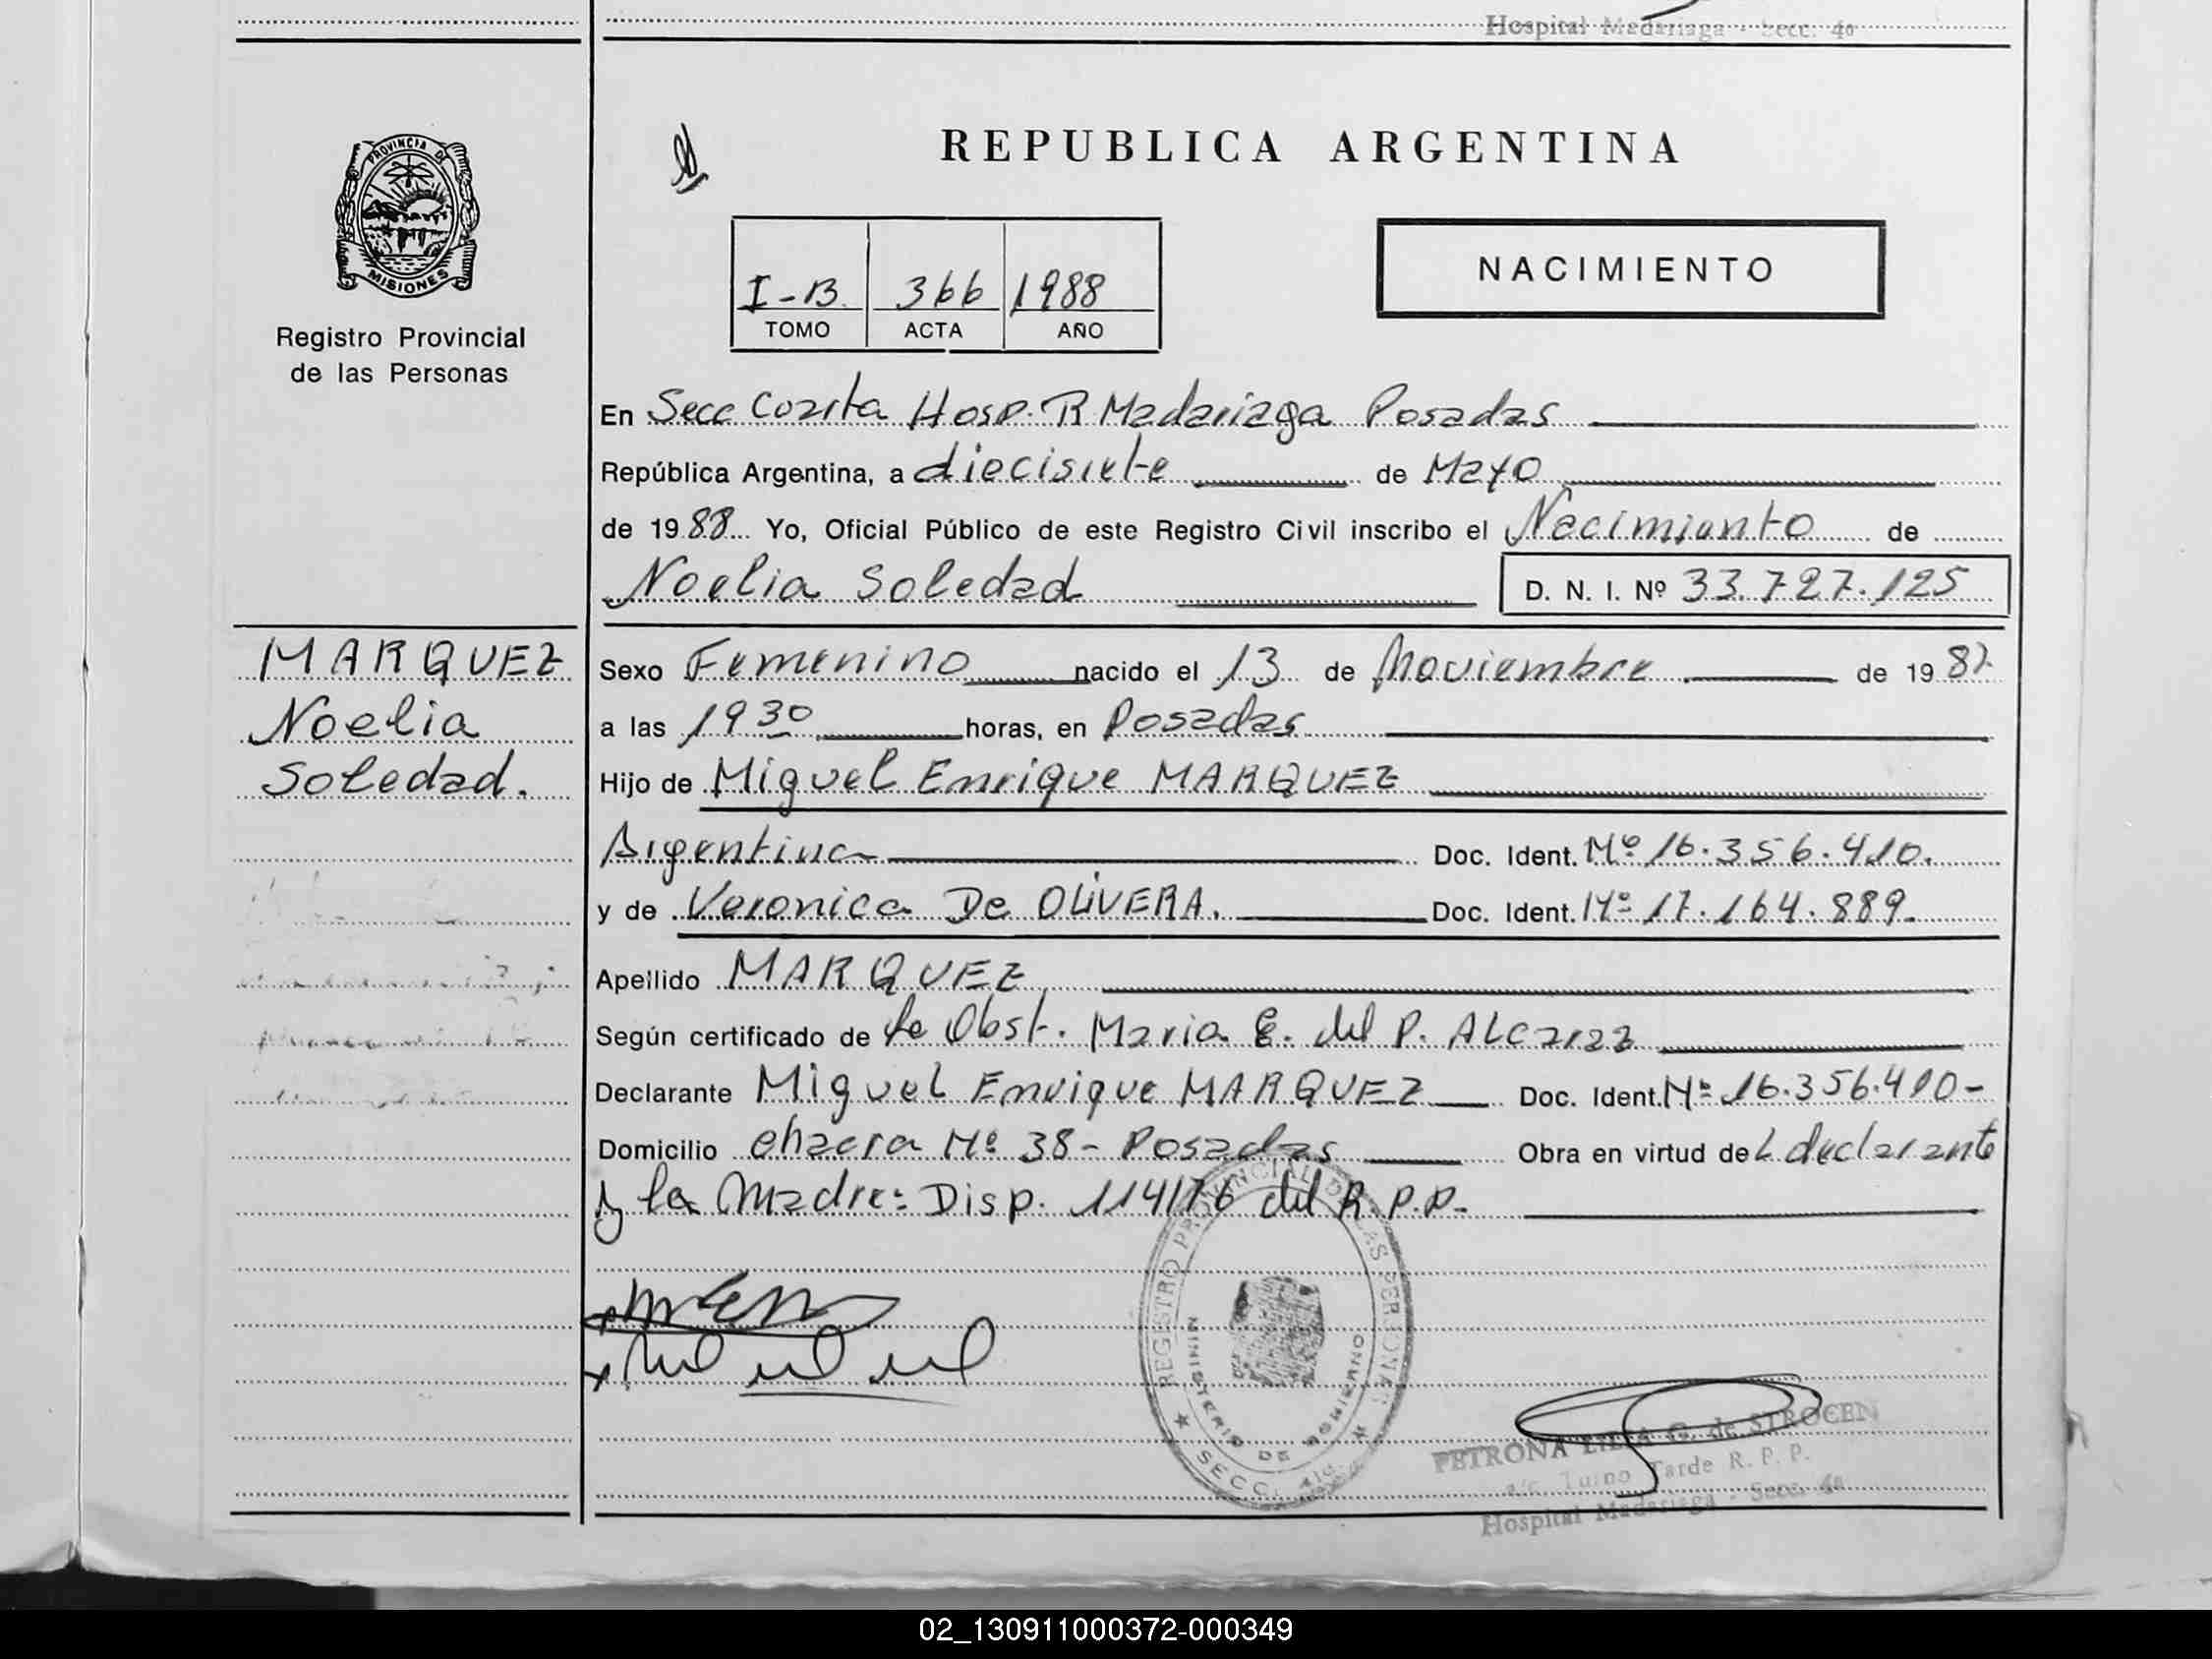 Hospital Madariaga - Secc. 4a
PROVINCIA DE
MISIONES
Registro Provincial
de las Personas
REPUBLICA ARGENTINA
NACIMIENTO
I-B. 366 1988
TOMO ACTA AÑO
En Secc Cuarta Hosp. R Madariaga Posadas
República Argentina, a diecisiete de Mayo
de 1988 Yo, Oficial Público de este Registro Civil inscribo el Nacimiento de
Noelia Soledad D. N. I. Nº 33.727.125
MARQUEZ
Noelia
Soledad.
Sexo Femenino nacido el 13 de Noviembre de 1987
a las 19 30 horas, en Posadas
Hijo de Miguel Enrique MARQUEZ
Argentina Doc. Ident. Nº 16.356.410.
y de Veronica De OLIVERA. Doc. Ident. Nº 17.164.889.
Apellido MARQUEZ
Según certificado de la Obst. Maria E. del P. ALCaraz
Declarante Miguel Enrique MARQUEZ Doc. Ident. Nº 16.356.410-
Domicilio chacra Nº 38 - Posadas Obra en virtud de L declarante
y la Madre: Disp. 114/76 del R.P.P.
REGISTRO PROVINCIAL DE LAS PERSONAS
MINISTERIO DE GOBIERNO
SECC. 4ta
PETRONA LILIA G. de STROCEN
a/c. Turno Tarde R. P. P.
Hospital Madariaga - Secc. 4a
02_130911000372-000349